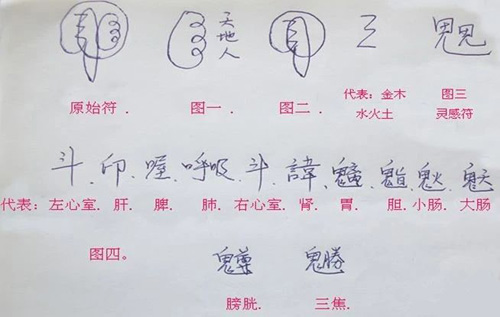 天地人
三
原始符. 图一. 图二. 代表：金木水火土 图三 灵感符
斗. 印. 喔. 呼吸. 斗. 諱.
代表：左心室. 肝. 脾. 肺. 右心室. 肾. 胃. 胆. 小肠. 大肠
图四。
膀胱. 三焦.